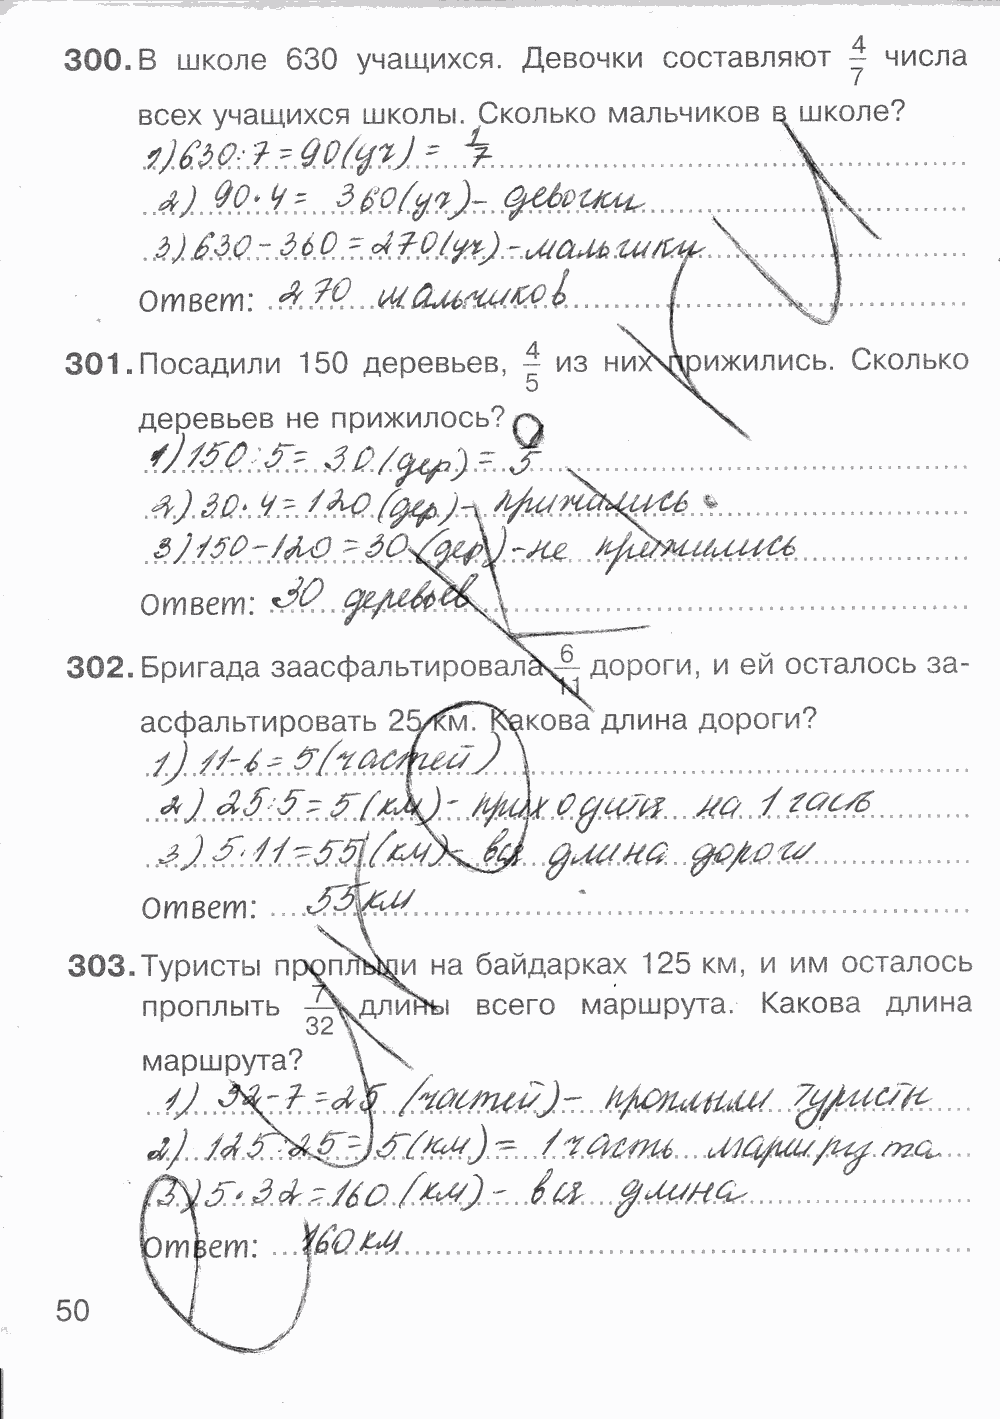 300. В школе 630 учащихся. Девочки составляют 4/7 числа
всех учащихся школы. Сколько мальчиков в школе?
1) 630:7=90(уч) = 1/7
2) 90·4= 360(уч)- девочки
3) 630-360=270(уч)-мальчики
Ответ: 270 мальчиков
301. Посадили 150 деревьев, 4/5 из них прижились. Сколько
деревьев не прижилось?
1) 150:5= 30(дер) = /5
2) 30·4=120(дер)- прижились
3) 150-120=30(дер)-не прижились
Ответ: 30 деревьев
302. Бригада заасфальтировала 6/11 дороги, и ей осталось за-
асфальтировать 25 км. Какова длина дороги?
1) 11-6=5(частей)
2) 25:5=5(км)- приходится на 1 часть
3) 5·11=55(км)- вся длина дороги
Ответ: 55 км
303. Туристы проплыли на байдарках 125 км, и им осталось
проплыть 7/32 длины всего маршрута. Какова длина
маршрута?
1) 32-7=25 (частей)- проплыли туристы
2) 125:25= 5(км) = 1 часть маршрута
3) 5·32=160(км)- вся длина
Ответ: 160 км
50